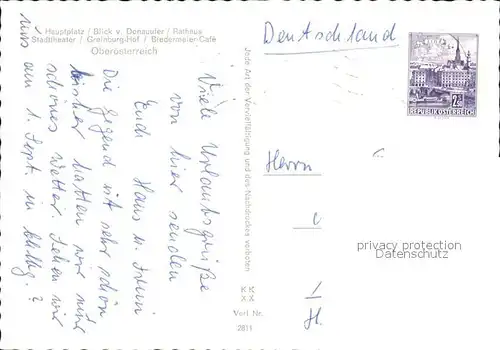 Hauptplatz / Blick v. Donauufer / Rathaus
Stadttheater / Greinburg-Hof / Biedermeier-Café
Oberösterreich
Viele Urlaubsgrüße
von hier senden
Euch Hans u.
Die Gegend ist sehr schön
bisher hatten wir nur
schönes Wetter. Sehen wir
uns am 1. Sept. in ?
Jede Art der Vervielfältigung und des Nachdruckes verboten
K K
X X
Verl Nr.
2811
Deutschland
2
REPUBLIK ÖSTERREICH
Herrn
H.
privacy protection
ANSICHTSKARTEN-CENTER.DE